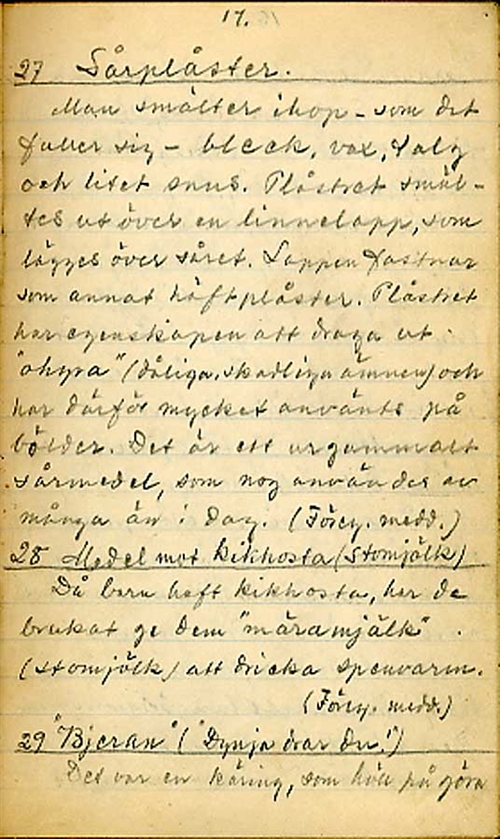 17.
27 Sårplåster.
Man smälter ihop - som det
faller sig - bleck, vax, talg
och litet snus. Plåstret smäl-
tes ut över en linnelapp, som
lägges över såret. Lappen fastnar
som annat häftplåster. Plåstret
har egenskapen att draga ut
"ohyra" (dåliga, skadliga ämnen) och
har därför mycket använts på
bölder. Det är ett urgammalt
sårmedel, som nog användes av
många än i dag. (Föreg. medd.)
28 Medel mot kikhosta (Stomjölk)
Då barn haft kikhosta, har de
brukat ge dem "märamjälk"
(stomjölk) att dricka spenvarm.
(Föreg. medd.)
29 "Bjeran" ("Dynja drar du!")
Det var en käring, som höll på göra